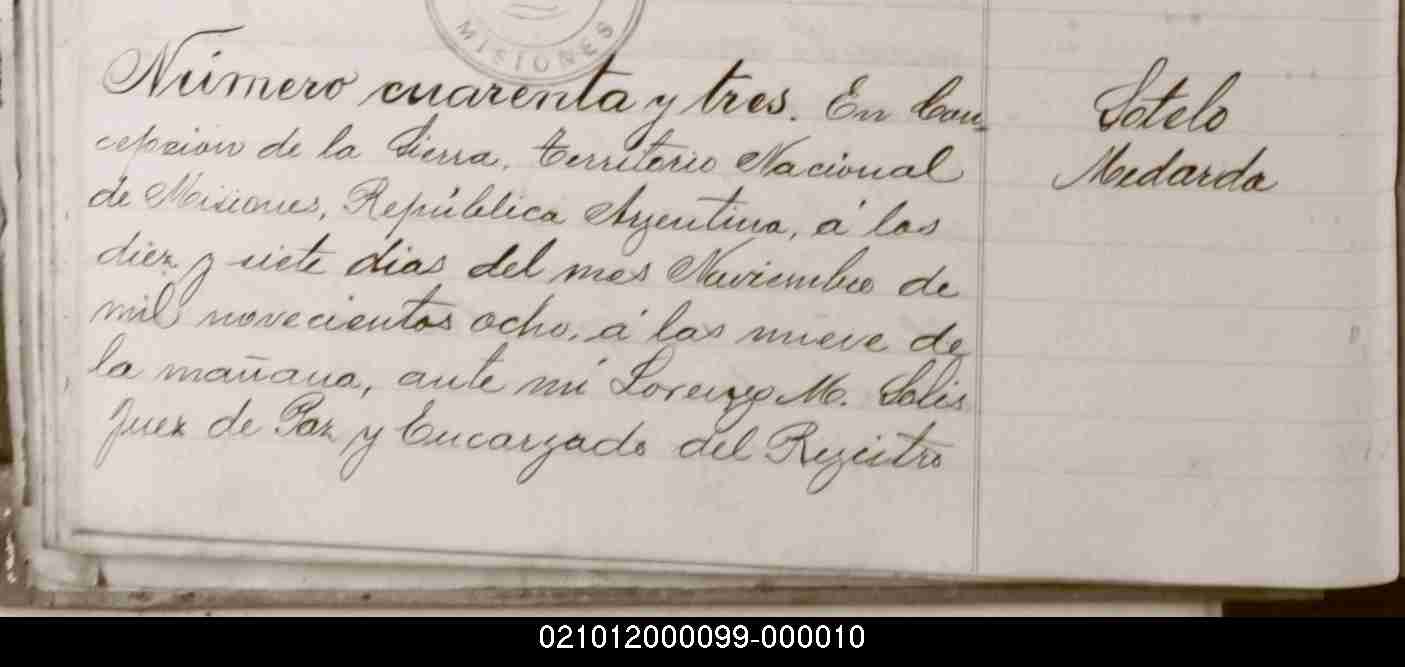 MISIONES
Número cuarenta y tres. En Con-
cepcion de la Sierra, territorio Nacional
de Misiones, República Argentina, á los
diez y siete dias del mes Noviembre de
mil novecientos ocho, á las nueve de
la mañana, ante mí Lorenzo M. Solis
Juez de Paz y Encargado del Registro
Sotelo
Medarda
021012000099-000010